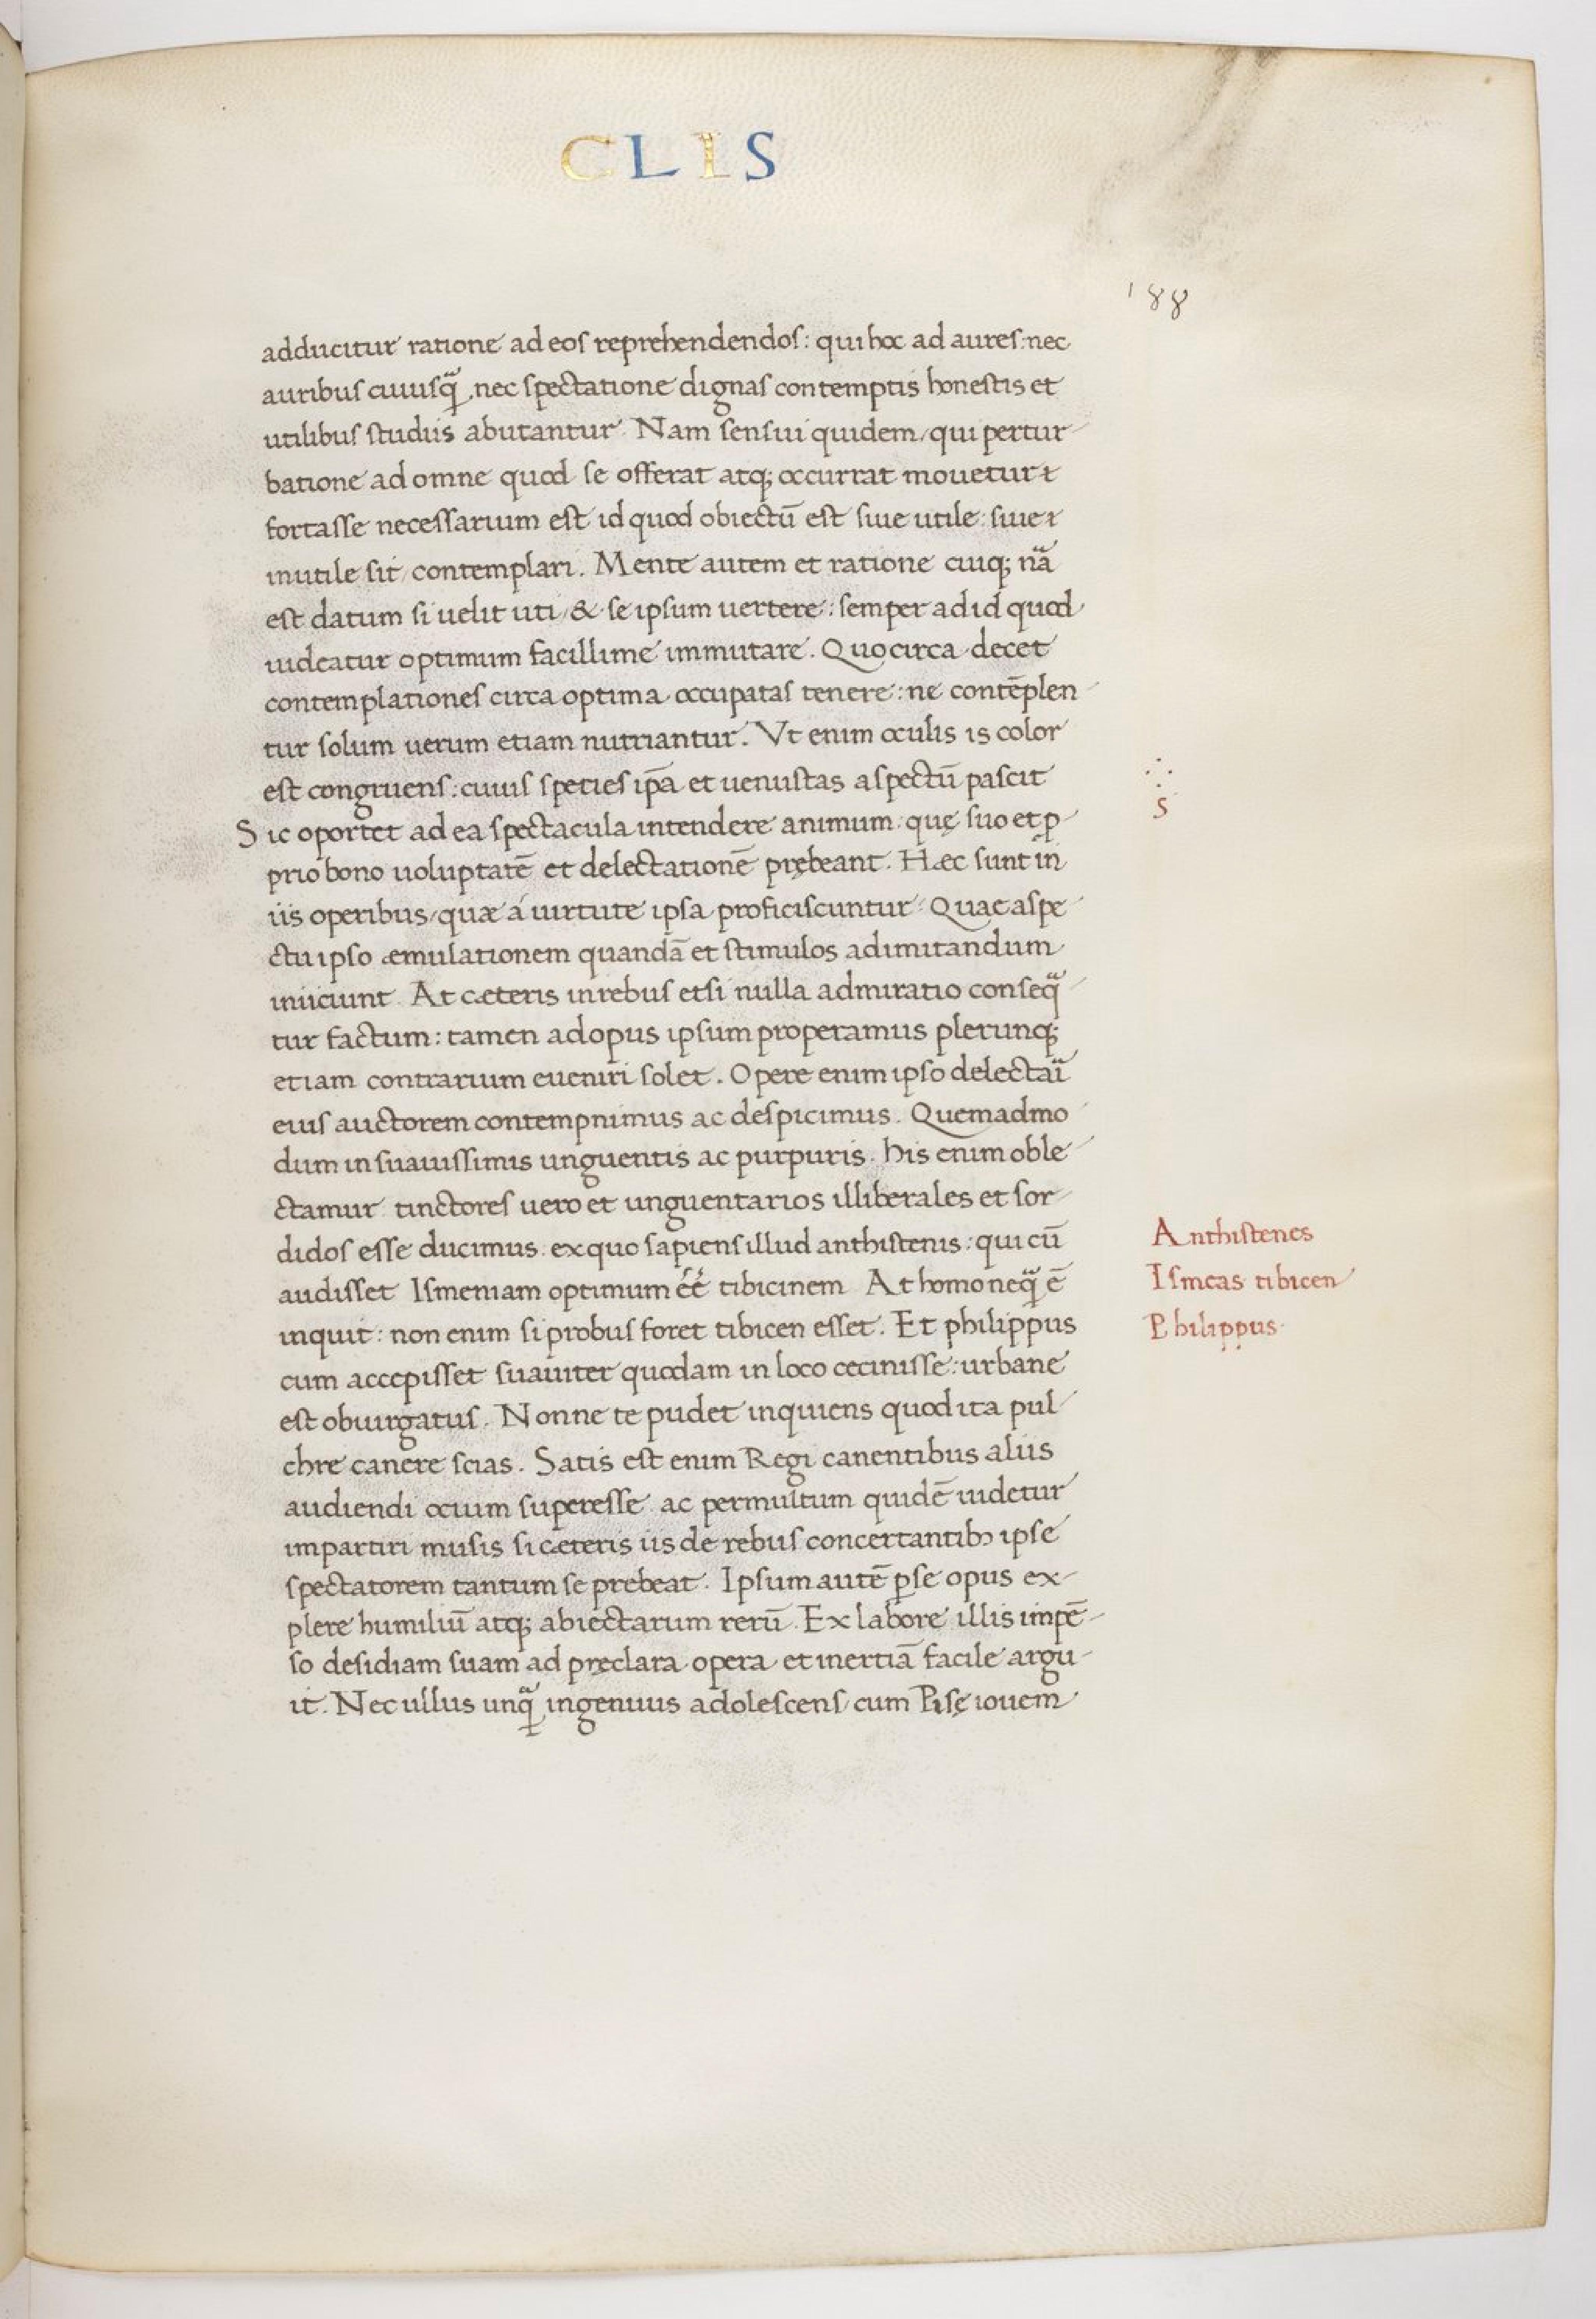 CLIS
188
adducitur ratione ad eos reprehendendos: qui hoc ad aures: nec
auribus cuiusq̃ nec spectatione dignas contemptis honestis et
utilibus studiis abutantur. Nam sensui quidem/ qui pertur
batione ad omne quod se offerat atq; occurrat mouetur &
fortasse necessarium est id quod obiectū est siue utile: siue &
inutile sit/ contemplari. Mente autem et ratione cuiq; nã
est datum si uelit uti/ & se ipsum uertere: semper ad id quod
uideatur optimum facillime immutare. Quocirca decet
contemplationes circa optima occupatas tenere: ne contēplen
tur solum uerum etiam nutriantur. Vt enim oculis is color
est congruens: cuius species ip̄a et uenustas aspectū pascit
Sic oportet ad ea spectacula intendere animum quę suo et ꝓ
prio bono uoluptatē et delectationē prębeant. Hæc sunt in
iis operibus/ quæ á uirtute ipsa proficiscuntur. Quae aspe
ctu ipso æmulationem quandā et stimulos ad imitandum
iniiciunt. At cæteris in rebus etsi nulla admiratio conseq̃
tur factum: tamen ad opus ipsum properamus plerunq;
etiam contrarium eueniri solet. Opere enim ipso delectaĩ
eius auctorem contempnimus ac despicimus. Quemadmo
dum in suauissimis unguentis ac purpuris. his enim oble
ctamur tinctores uero et unguentarios illiberales et sor
didos esse ducimus: ex quo sapiens illud anthistenis: qui cū
audisset Ismeniam optimum éé tibicinem At homo neq̃ ē
inquit: non enim si probus foret tibicen esset. Et philippus
cum accepisset suauiter quodam in loco cecinisse: urbane
est obiurgatus. Nonne te pudet inquiens quod ita pul
chre canere scias. Satis est enim Regi canentibus aliis
audiendi ocium superesse ac permultum quidē uidetur
impartiri musis si cæteris iis de rebus concertantibꝫ ipse
spectatorem tantum se prebeat. Ipsum autē ꝑ se opus ex
plere humiliū atq; abiectarum rerū. Ex labore illis impē
so desidiam suam ad pręclara opera et inertiā facile argu
it. Nec ullus unq̃ ingenuus adolescens cum Pisę iouem
S
Anthistenes
Ismeas tibicen
Philippus